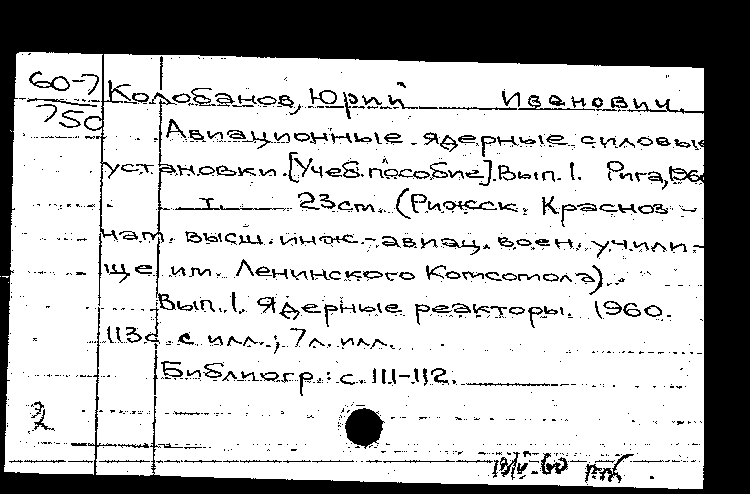 60-7
750
Колобанов, Юрий Иванович.
Авиационные ядерные силовые
установки. [Учеб. пособие]. Вып. 1. Рига, 1960
т. 23 см. (Рижск. Краснозн-
нам. высш. инж.-авиац. воен. учили-
ще им. Ленинского Комсомола).
Вып. 1. Ядерные реакторы. 1960.
113 с. с илл.; 7 л. илл.
Библиогр.: с. 111-112.
2